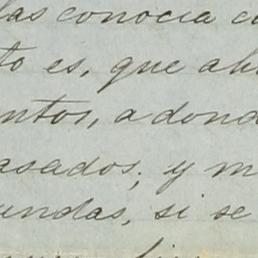 las conocia c
to es, que ah
ntos, adond
asados; y m
undas, si se